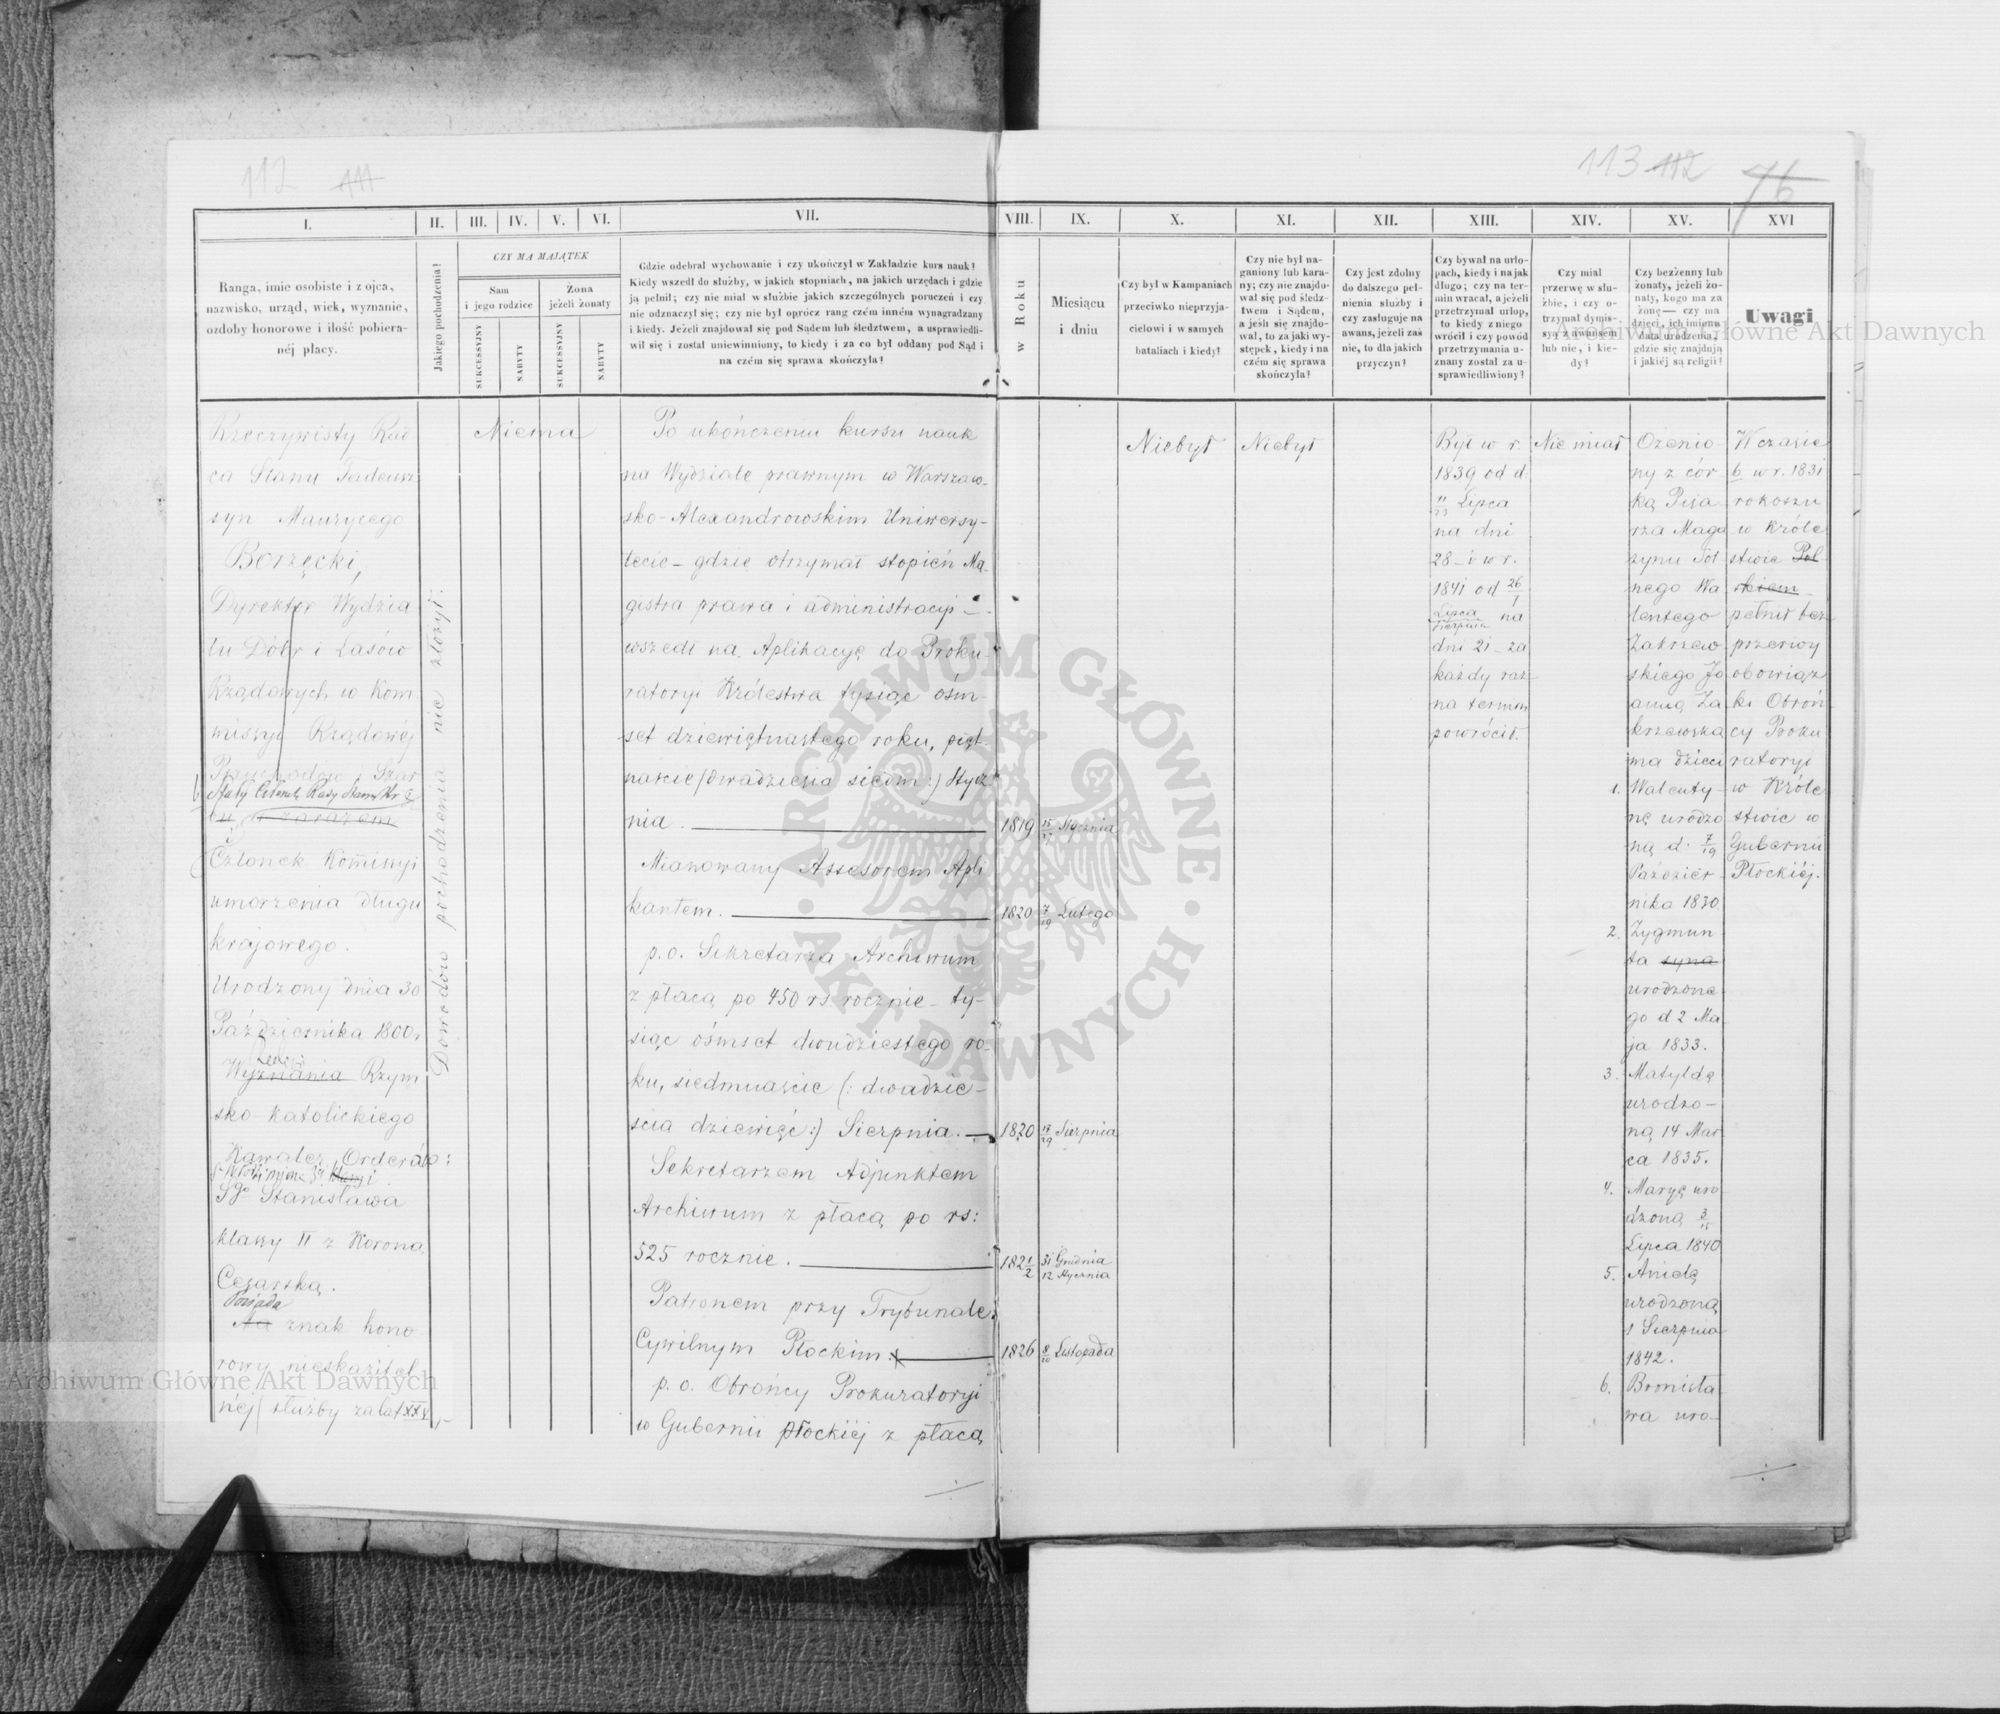 112 111
113 112 76
I.
Ranga, imie osobiste i z ojca,
nazwisko, urząd, wiek, wyznanie,
ozdoby honorowe i ilość pobiera-
néj płacy.
II.
Jakiego pochodzenia?
III. IV. V. VI.
CZY MA MAJĄTEK
Sam
i jego rodzice
Żona
jeżeli żonaty
SUKCESSYJNY
NABYTY
SUKCESSYJNY
NABYTY
VII.
Gdzie odebrał wychowanie i czy ukończył w Zakładzie kurs nauk?
Kiedy wszedł do służby, w jakich stopniach, na jakich urzędach i gdzie
ją pełnił; czy nie miał w służbie jakich szczególnych poruczeń i czy
nie odznaczył się; czy nie był oprócz rang czém inném wynagradzany
i kiedy. Jeżeli znajdował się pod Sądem lub śledztwem, a usprawiedli-
wił się i został uniewinniony, to kiedy i za co był oddany pod Sąd i
na czém się sprawa skończyła?
VIII.
w Roku
IX.
Miesiącu
i dniu
X.
Czy był w Kampaniach
przeciwko nieprzyja-
cielowi i w samych
bataliach i kiedy?
XI.
Czy nie był na-
ganiony lub kara-
ny; czy nie znajdo-
wał się pod śledz-
twem i Sądem,
a jeśli się znajdo-
wał, to za jaki wy-
stępek, kiedy i na
czém się sprawa
skończyła?
XII.
Czy jest zdolny
do dalszego peł-
nienia służby i
czy zasługuje na
awans, jeżeli zaś
nie, to dla jakich
przyczyn?
XIII.
Czy bywał na urlo-
pach, kiedy i na jak
długo; czy na ter-
min wracał, a jeżeli
przetrzymał urlop,
to kiedy z niego
wrócił i czy powód
przetrzymania u-
znany został za u-
sprawiedliwiony?
XIV.
Czy miał
przerwę w słu-
żbie, i czy o-
trzymał dymis-
syą z awansem
lub nie, i kie-
dy?
XV.
Czy bezżenny lub
żonaty, jeżeli żo-
naty, kogo ma za
żonę — czy ma
dzieci, ich imiona
data urodzenia,
gdzie się znajdują
i jakiéj są religii?
XVI
Uwagi
Rzeczywisty Rad
ca Stanu Tadeusz
syn Maurycego
Borzęcki,
Dyrektor Wydzia
łu Dóbr i Lasów
Rządowych w Kom-
missyi Rządowéj
Przychodów i Skar
Stały Członek Rady Stanu
bu, a zarazem
i
Członek Kommisyi
umorzenia długu
krajowego.
Urodzony dnia 30
Października 1800,
Wyznania Rzym
sko katolickiego
Kawaler Orderów:
Sgo Stanisława
klassy II z Koroną
Cesarską.
Posiada
Ma znak hono
rowy nieskazitel
néj służby za lat XXV
Dowodów pochodzenia nie złożył.
Niema
Po ukończeniu kursu nauk
na Wydziale prawnym w Warszaw-
sko-Alexandrowskim Uniwersy-
tecie – gdzie otrzymał stopień Ma-
gistra prawa i administracyi –
wszedł na Aplikacyę do Proku-
ratoryi Królestwa tysiąc óśm-
set dziewiętnastego roku, pięt-
naście (dwadzieścia siedm:) Stycz-
nia.
1819 15/27 Stycznia
Mianowany Assesorem Apli
kantem.
1820 7/19 Lutego
p.o. Sekretarza Archiwum
z płacą po 450 rs rocznie – ty-
siąc óśmset dwudziestego ro-
ku, siedmnaście (: dwadzie-
ścia dziewięć:) Sierpnia.
1820 17/29 Sierpnia
Sekretarzem Adjunktem
Archiwum z płacą po rs:
525 rocznie.
1821/2 31 Grudnia
12 Stycznia
Patronem przy Trybunale
Cywilnym Płockim.
1826 8/20 Listopada
p.o. Obrońcy Prokuratoryi
w Gubernii płockiéj z płacą
Niebył
Niebył
Był w r.
1839 od d.
11/23 Lipca
na dni
28 – i w r.
1841 od 26/7
Lipca/Sierpnia na
dni 21 – za
każdy raz
na termin
powrócił.
Nie miał
Ożenio-
ny z cór
ką Pisa
rza Maga
zynu Sol
nego Wa
lentego
Zakrzew
skiégo Jo
anną Za
krzewską
ma dzieci
1. Walenty-
nę urodzo
ną d. 7/19
Paździer-
nika 1830
2. Zygmun
ta syna
urodzone
go d 2 Ma
ja 1833.
3. Matyldę
urodzo-
ną 14 Mar
ca 1835.
4. Maryę uro-
dzoną 3/15
Lipca 1840
5. Anielę
urodzoną
1 Sierpnia
1842.
6. Bronisła-
wa uro-
W czasie
6 w r. 1831
rokoszu
w Króle
stwie Pol-
skiem
pełnił bez
przerwy
obowiąz
ki Obroń-
cy Proku
ratoryi
w Króle
stwie w
Gubernii
Płockiéj.
Archiwum Główne Akt Dawnych
Archiwum Główne Akt Dawnych
ARCHIWUM GŁÓWNE
AKT DAWNYCH